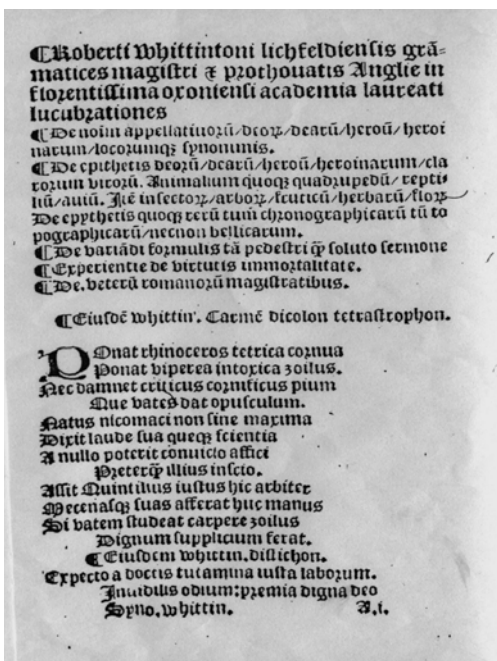 ¶Roberti Whittintoni lichfeldiensis grā-
matices magistri ⁊ prothouatis Anglie in
florentissima oxoniensi academia laureati
lucubrationes
¶De noīm appellatiuorū/deoꝝ/dearū/heroū/heroi
narum/locorumqꝫ synonimis.
¶De epithetis deorū/dearū/heroū/heroinarum/cla
rorum virorū. Animalium quoqꝫ quadrupedū/repti-
liū/auiū. Itē insectoꝝ/arboꝝ/fruticū/herbarū/floꝝ
De epythetis quoqꝫ rerū tum chronographicarū tū to
pographicarū/necnon bellicarum.
¶De variādi formulis tā pedestri qꝫ soluto sermone
¶Experientie de virtutis immortalitate.
¶De.veterū romanorū magistratibus.
¶Eiusdē whittin. Carmē dicolon tetrastrophon.
POnat rhinoceros tetrica cornua
Ponat viperea intoxica zoilus.
Nec damnet criticus cornificus pium
Que vates dat opusculum.
Natus nicomaci non sine maxima
Dixit laude sua queqꝫ scientia
A nullo poterit conuicio affici
Preterqꝫ illius inscio.
Assit Quintilius iustus hic arbiter
Mecenasqꝫ suas afferat huc manus
Si vatem studeat carpere zoilus
Dignum supplicium ferat.
¶Eiusdem whittin.distichon.
Expecto a doctis tutamina iusta laborum.
Inuidilis odium:premia digna deo
Syno.whittin. A.i.